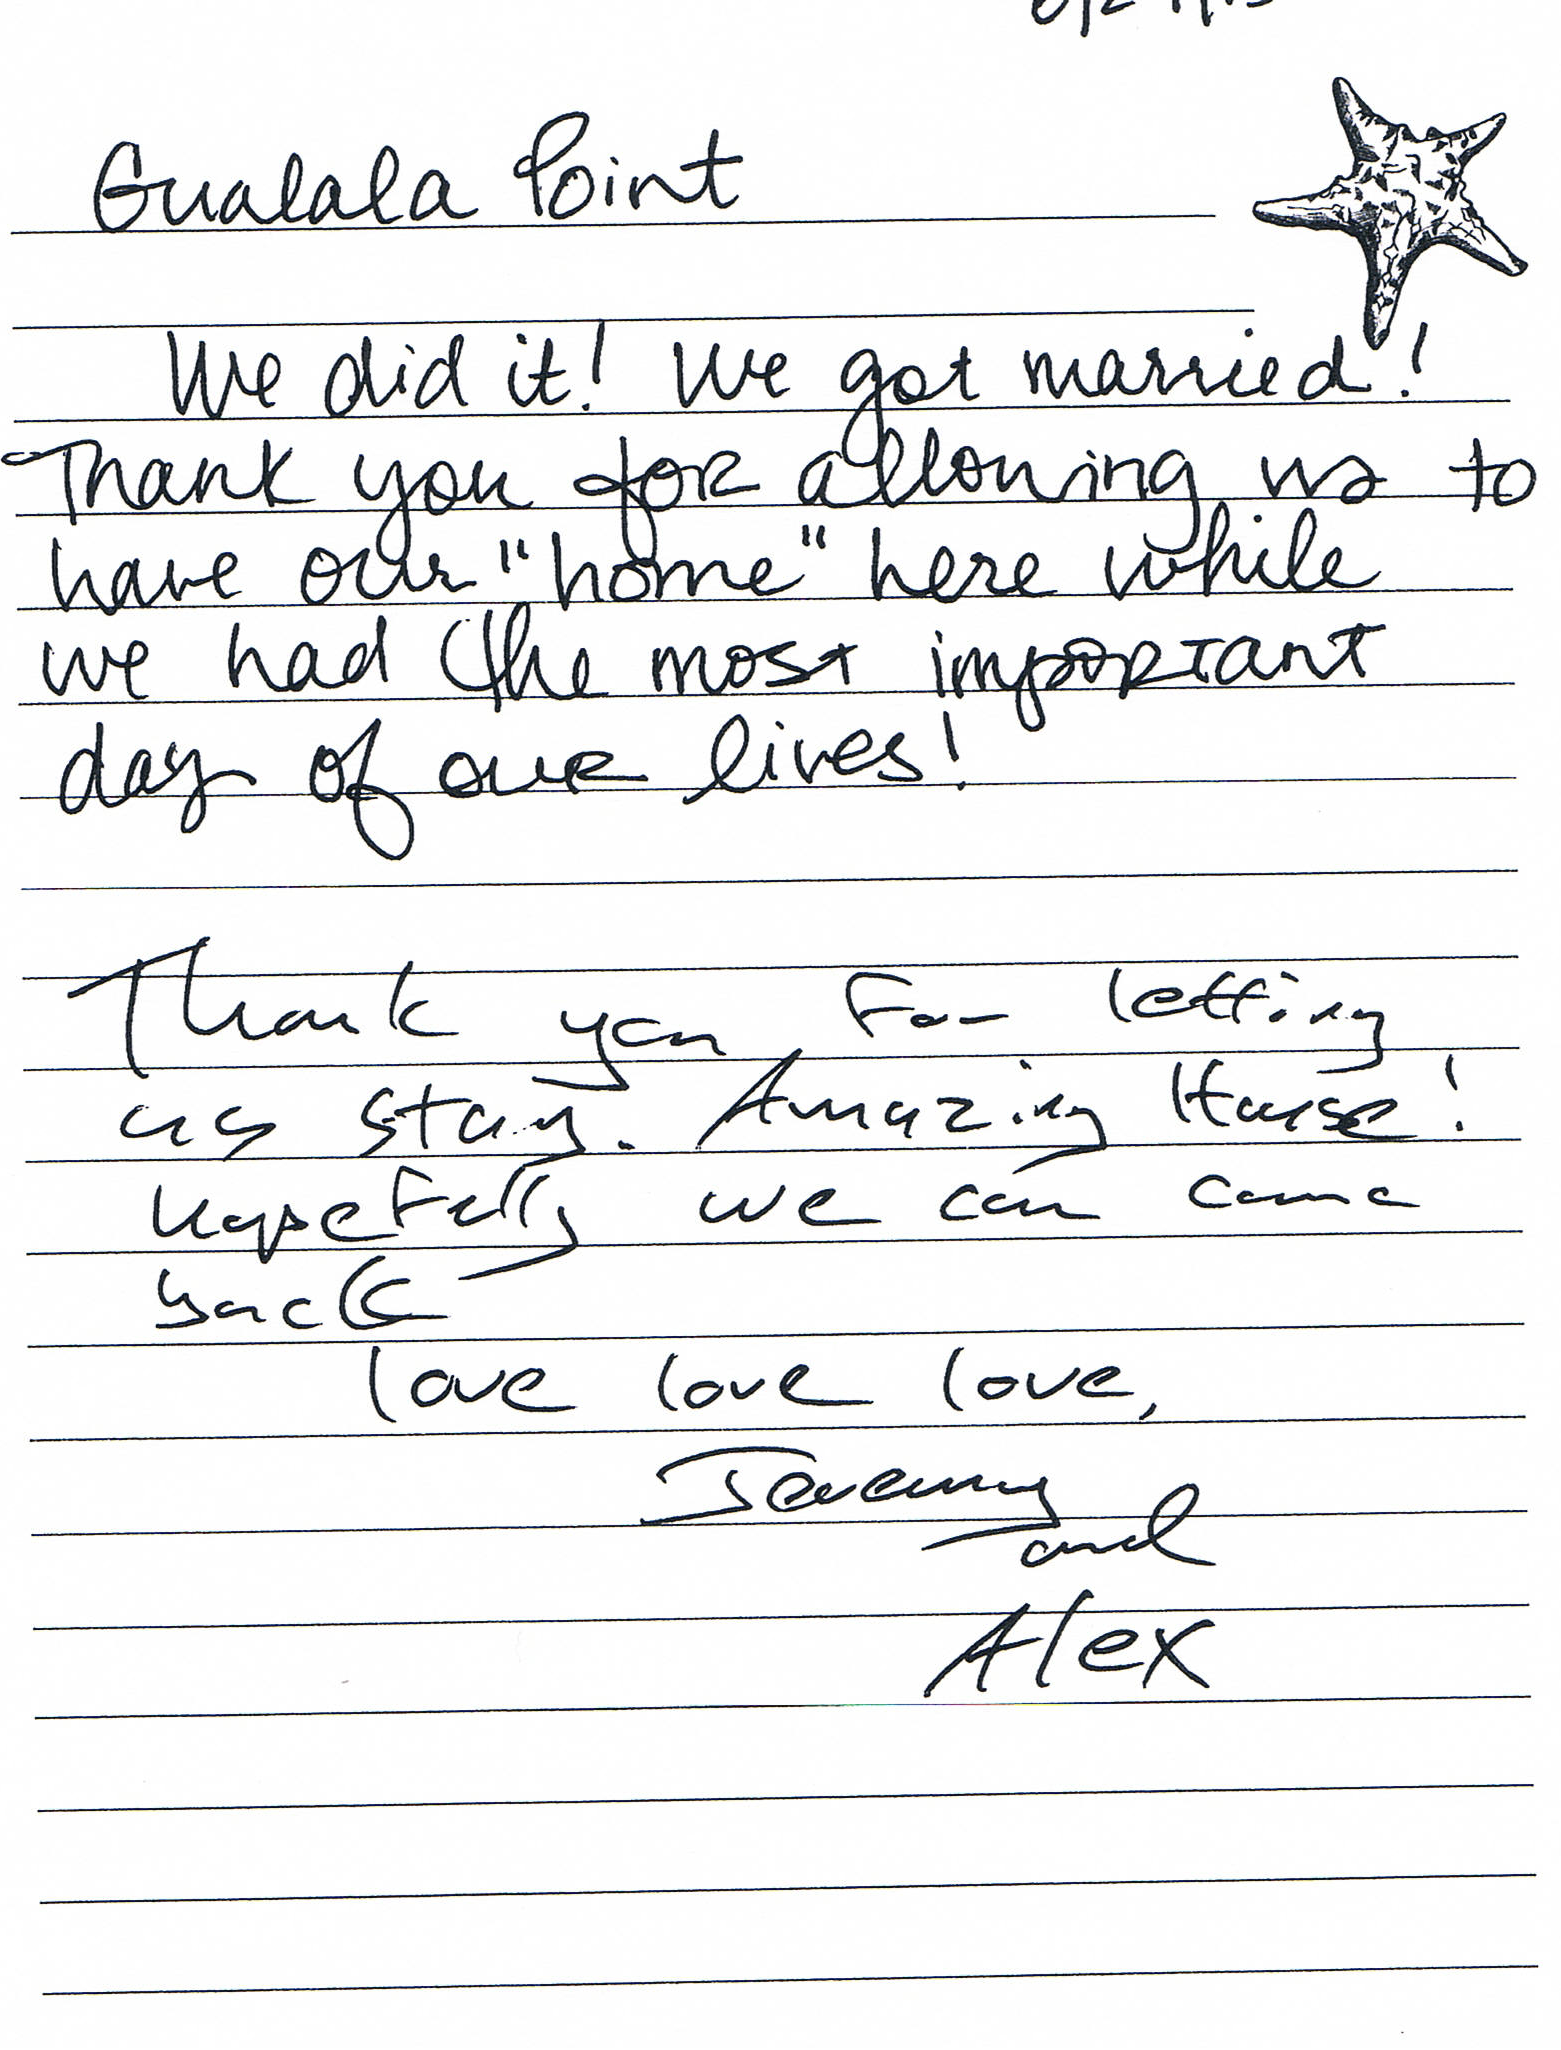 Gualala Point
We did it! We got married!
Thank you for allowing us to
have our "home" here while
we had the most important
day of our lives!
Thank you for letting
us stay. Amazing House!
Hopefully we can come
back
love love love,
Jeremy
and
Alex